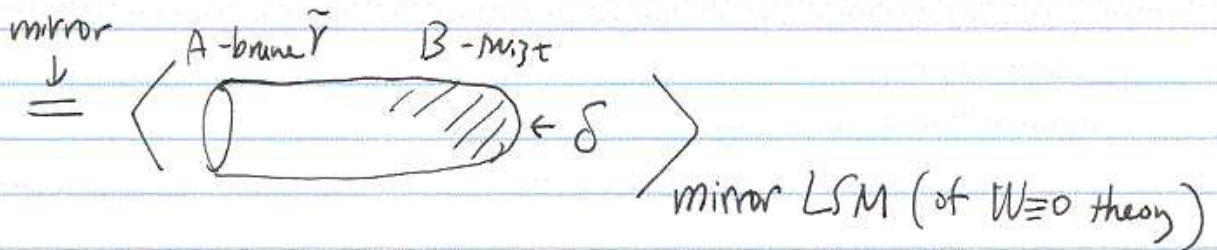 mirror
A-brane γ̃ B-twist
= ⟨ ← δ ⟩
mirror LSM (of W≡0 theory)